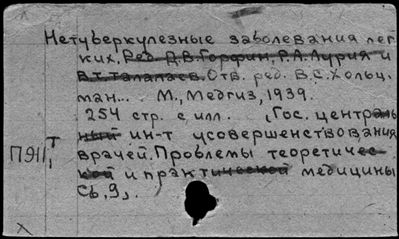 Нетуберкулезные заболевания лег
ких. Ред. Д.В. Горфин, Р.А. Лурия и
В.т. талалаев. Отв. ред. В.С. Хольц,
ман... М., Медгиз, 1939.
254 стр. с илл. (Гос. централь
ный ин-т усовершенствования
П9II,т врачей. Проблемы теоретичес
кой и практической медицины
Сб. 9).